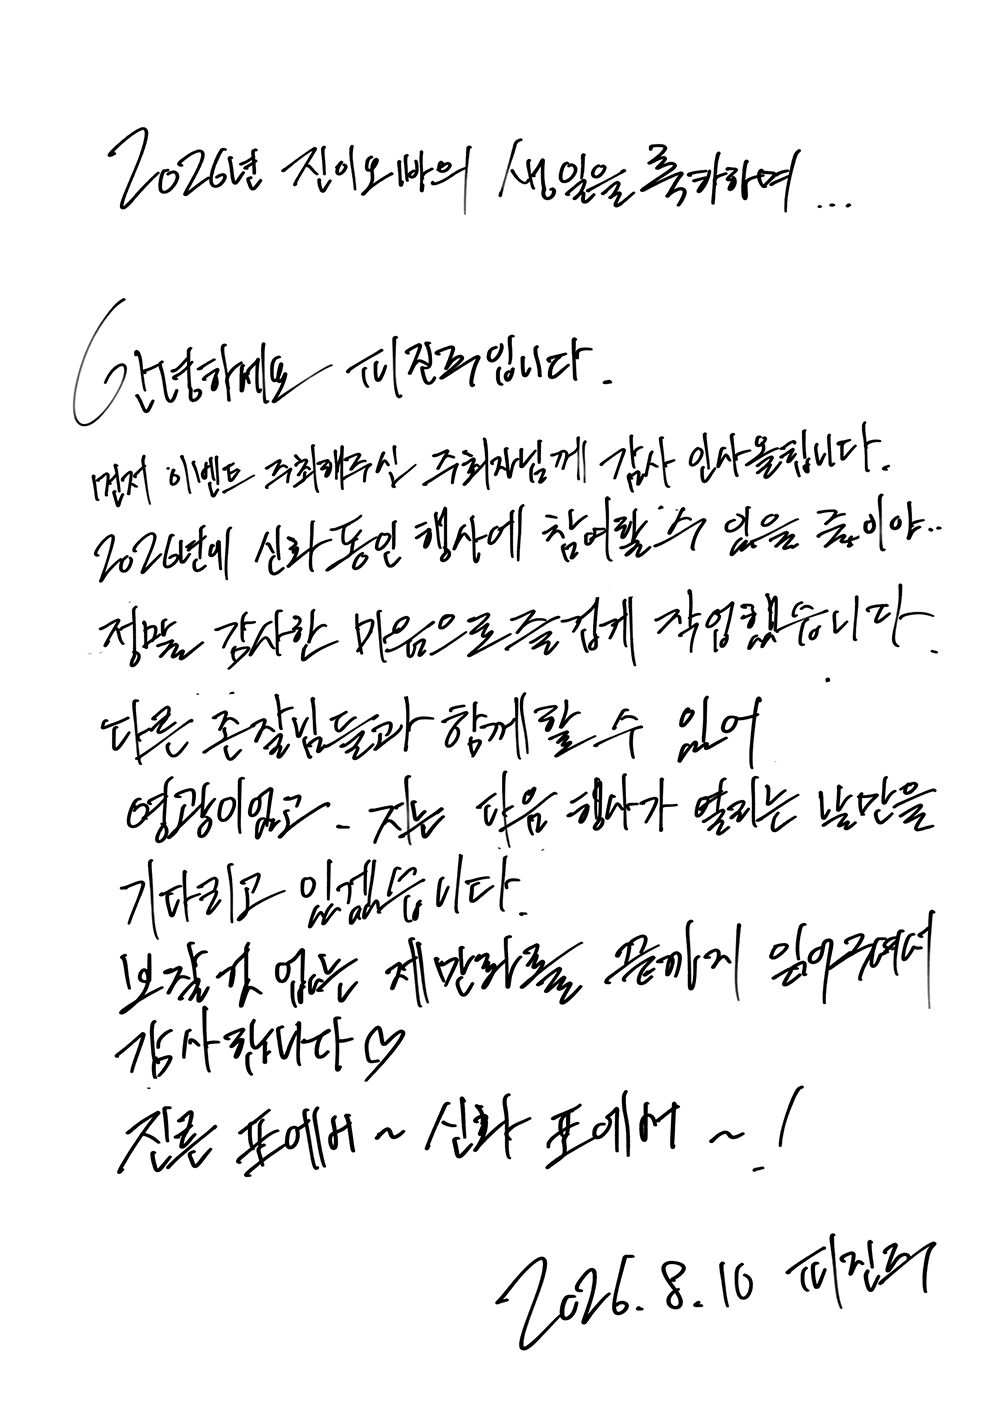 2026년 진이오빠의 생일을 축카하며...
안녕하세요 피진국입니다.
먼저 이벤트 주최해주신 주최자님께 감사 인사 올립니다.
2026년에 신화 동인 행사에 참여할 수 있을 줄이야..
정말 감사한 마음으로 즐겁게 작업했습니다.
다른 존잘님들과 함께 할 수 있어
영광이었고. 저는 다음 행사가 열리는 날만을
기다리고 있겠습니다.
보잘 것 없는 제 만화를 끝까지 읽어주셔서
감사합니다♡
진른 포에버~ 신화 포에버~!
2026.8.10